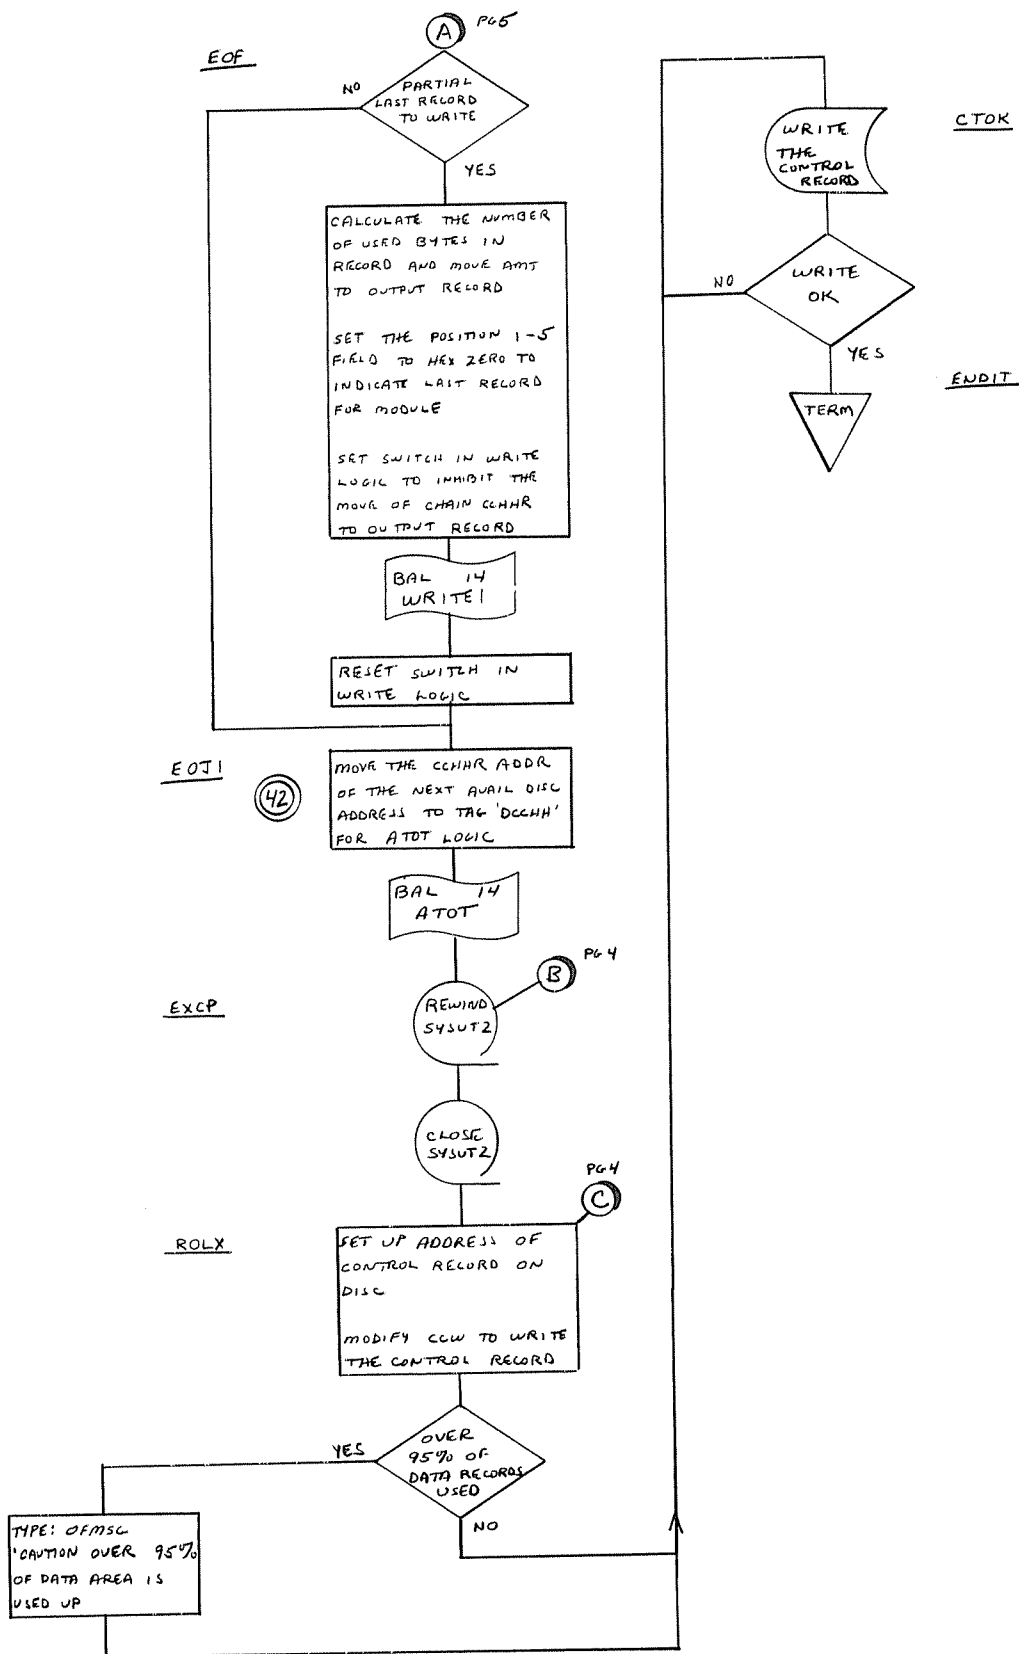 A PG5
EOF
NO
PARTIAL
LAST RECORD
TO WRITE
YES
CALCULATE THE NUMBER
OF USED BYTES IN
RECORD AND MOVE AMT
TO OUTPUT RECORD
SET THE POSITION 1-5
FIELD TO HEX ZERO TO
INDICATE LAST RECORD
FOR MODULE
SET SWITCH IN WRITE
LOGIC TO INHIBIT THE
MOVE OF CHAIN CCHHR
TO OUTPUT RECORD
BAL 14
WRITE1
RESET SWITCH IN
WRITE LOGIC
EOJ1
42
MOVE THE CCHHR ADDR
OF THE NEXT AVAIL DISC
ADDRESS TO TAG 'DCCHH'
FOR ATOT LOGIC
BAL 14
ATOT
B PG4
EXCP
REWIND
SYSUT2
CLOSE
SYSUT2
PG4
C
ROLX
SET UP ADDRESS OF
CONTROL RECORD ON
DISC
MODIFY CCW TO WRITE
THE CONTROL RECORD
YES
OVER
95% OF
DATA RECORDS
USED
NO
TYPE: OFMSG
'CAUTION OVER 95%
OF DATA AREA IS
USED UP
CTOK
WRITE
THE
CONTROL
RECORD
NO
WRITE
OK
YES
ENDIT
TERM